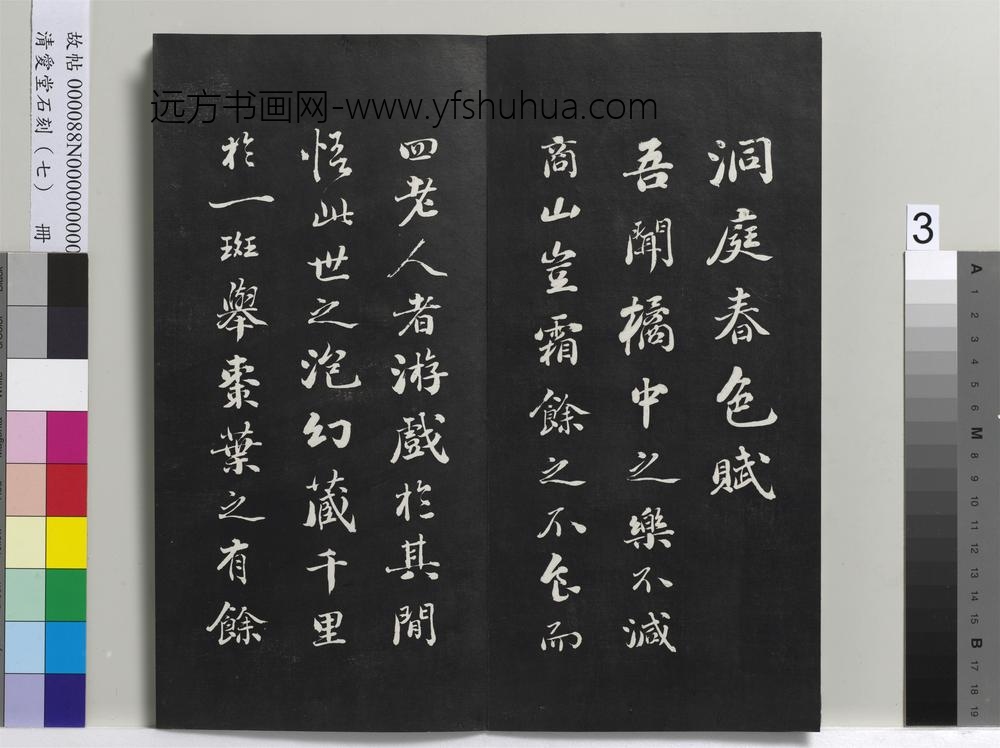 远方书画网-www.yfshuhua.com
洞庭春色賦
吾聞橘中之樂不減
商山豈霜餘之不食而
四老人者游戲於其閒
悟此世之泡幻藏千里
於一斑舉棗葉之有餘
故帖 000088N000000000
清愛堂石刻（七） 冊
3
A 1 2 3 4 5 6 M 8 9 10 11 12 13 14 15 B 17 18 19